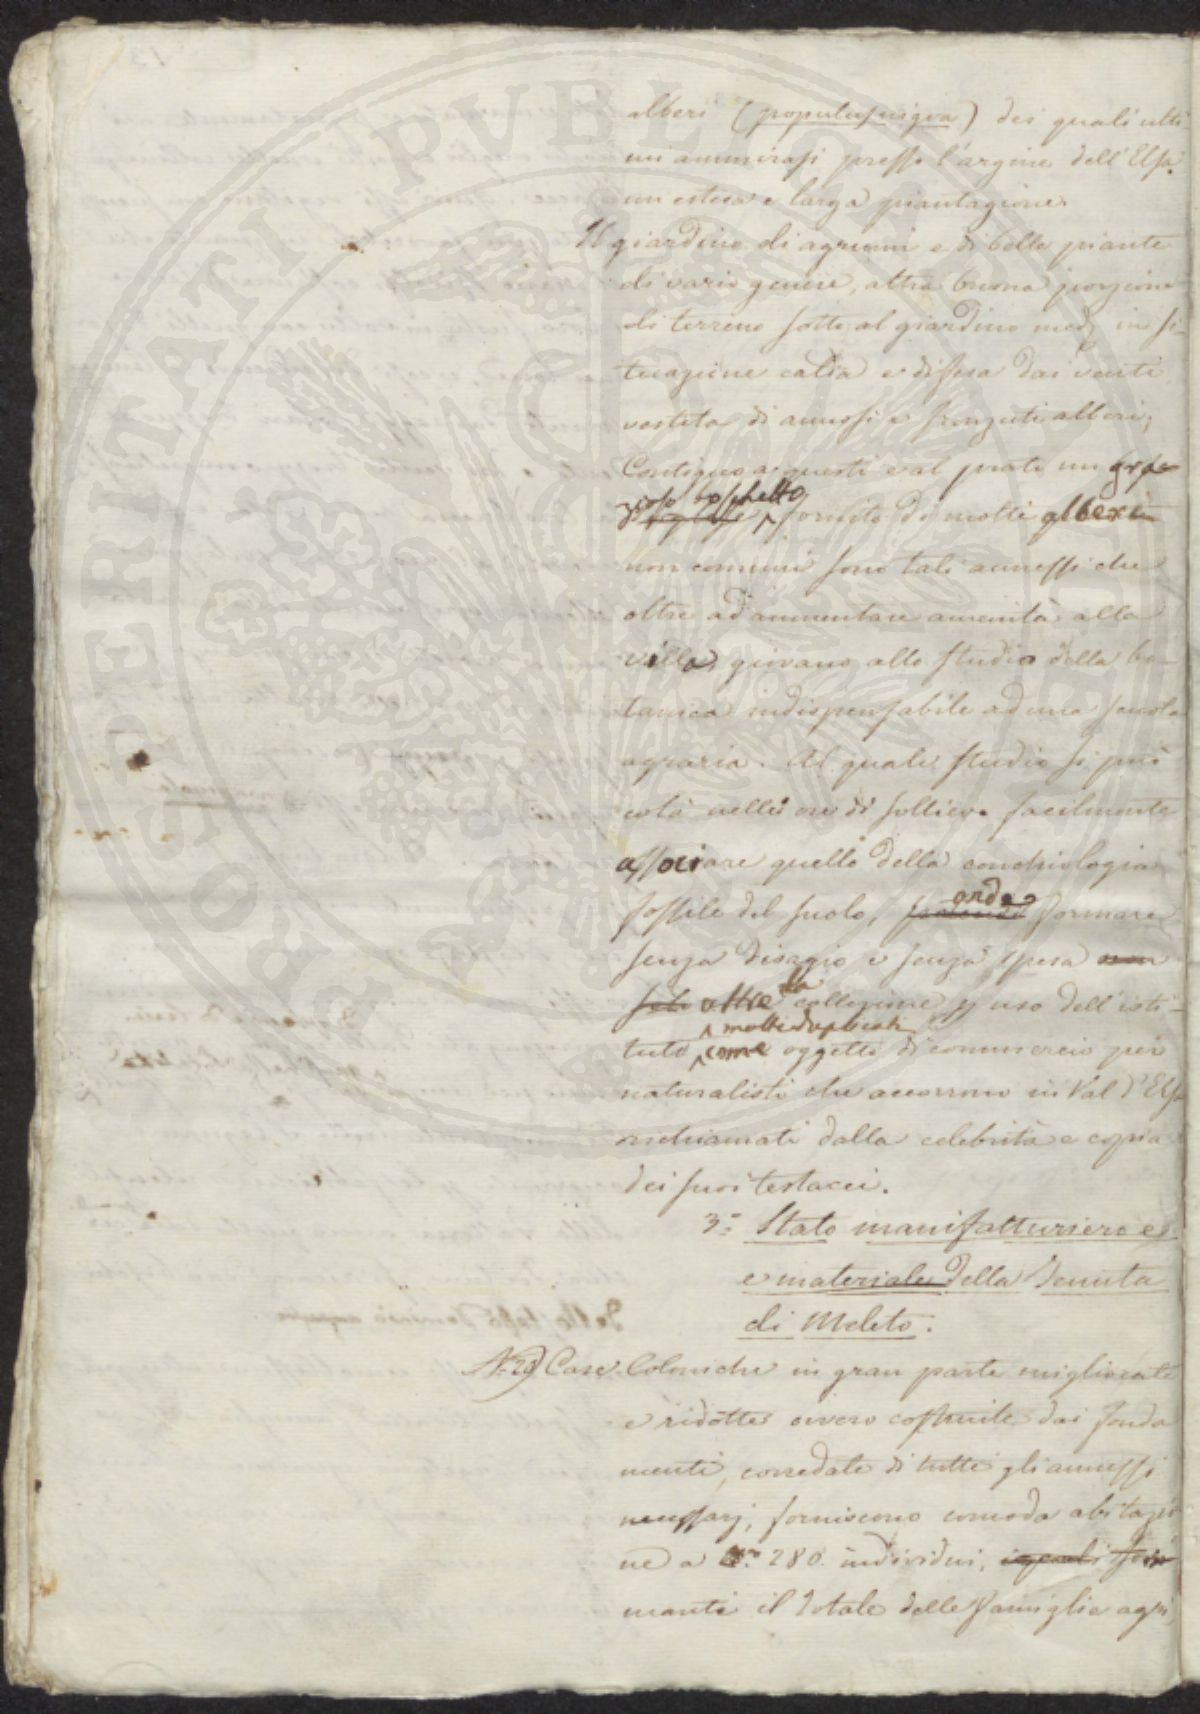 alberi (populus nigra) dei quali ulti
mi ammirasi presso l'argine dell'Elsa
un estesa e larga piantagione.
Il giardino di agrumi e di belle piante
di vario genere, altra buona porzione
di terreno sotto al giardino med.º in si-
tuazione calda e difesa dai venti
vestita di annosi e fronzuti alberi;
Contiguo a questi e al prato un gra-
zioso boschetto
fornito di molti alberi
non comuni sono tali annessi che
oltre ad aumentare amenità alla
villa, giovano allo studio della bo-
tanica indispensabile ad una scuola
agraria. Al quale studio si può
colà nelle ore di sollievo facilmente
associare quello della conchiologia
fossile del suolo, onde formare
senza disagio e senza spesa non
solo oltre la collezione p uso dell'isti-
molti duplicati
tuto come oggetto di commercio pei
naturalisti che accorrono in Val d'Elsa
richiamati dalla celebrità e copia
dei suoi testacei.
3º Stato manifatturiero e
e materiale della Tenuta
di Meleto.
Nº 28 Case Coloniche in gran parte migliorate
e ridotte ovvero costruite dai fonda
menti, corredate di tutti gli annessi
necessarj, forniscono comoda abitazio
ne a Nº 280. individui, i quali for
manti il totale delle famiglie agri